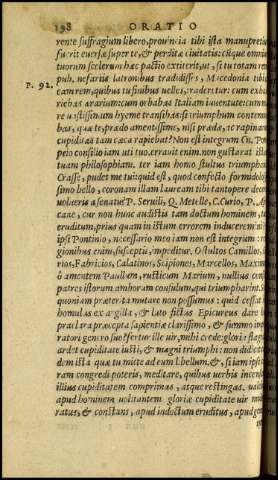 198 ORATIO
rente suffragium libero, prouincia tibi ista manupretiu
fuerit euersæ super te, & perditæ ciuitatis: cæsique omnium
tuorum scelerum hæc pactio extiterit, ut, si tu totam remp.
pub. nefariis latronibus tradidisses, Macedonia tibi
P. 92. eam rem, quibus tu finibus uelles, traderetur: cum exhau
riebas ærarium: cum orbabas Italiam iuuentute: cum
re uastissimum hyeme transibas: si triumphum contemne
bas, quæ te, prædo amentissime, nisi prædæ, ac rapinarum
cupiditas tam cæca rapiebat? Non est integrum Cn. Pom
peio consilio iam uti tuo. errauit enim. non gustarat istam
tuam philosophiam. ter iam homo stultus triumphauit.
Crasse, pudet me tui: quid est, quod confecto formidolosis
simo bello, coronam illam lauream tibi tantopere decerni
uolueris a senatu? P. Seruili, Q. Metelle, C. Curio, P.
cane, cur non hunc audistis tam doctum hominem,
eruditum, prius quam in istum errorem induceremini:
ipsi Pontinio, necessario meo iam non est integrum: reli
gionibus enim, susceptis, impeditur. O stultos Camillos, Cu
rios, Fabricios, Calatinos, Scipiones, Marcellos, Maximos:
ô amentem Paullum, rusticum Marium, nullius consilii
patres istorum amborum consulum, qui triumpharint. Sed
quoniam præterita mutare non possumus: quid cessat hic
homulus ex argilla, & luto fictus Epicurus dare
præclara præcepta sapientiæ clarissimo, & summo impe
ratori genero suo? fertur ille uir, mihi crede: gloria flagrat
ardet cupiditate iusti, & magni triumphi: non didicit
dem ista quæ tu. mitte ad eum libellum. & si iam ipse
ram congredi poteris, meditare, quibus uerbis incensam
illius cupiditatem comprimas, atque restinguas. uale
apud hominem uolitantem gloriæ cupiditate uir mode
ratus, & constans, apud indoctum eruditus, apud gene